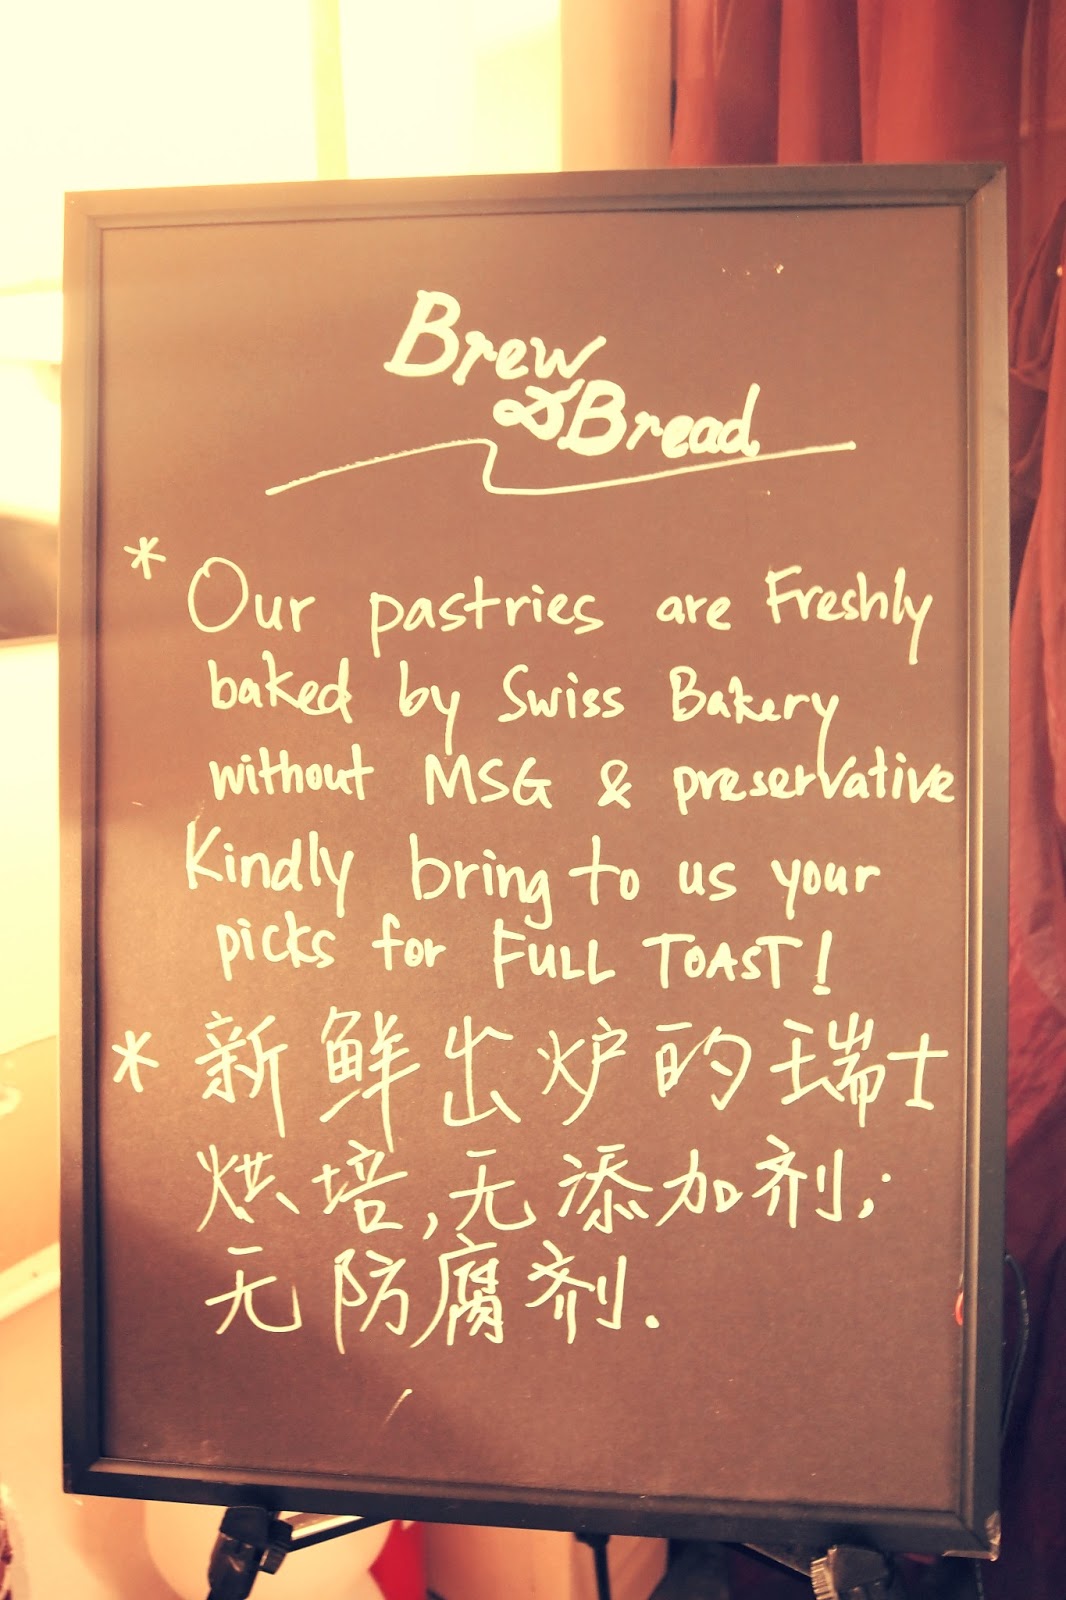 Brew
& Bread
* Our pastries are Freshly
baked by Swiss Bakery
without MSG & preservative
Kindly bring to us your
picks for FULL TOAST!
* 新鲜出炉的瑞士
烘培,无添加剂;
无防腐剂.